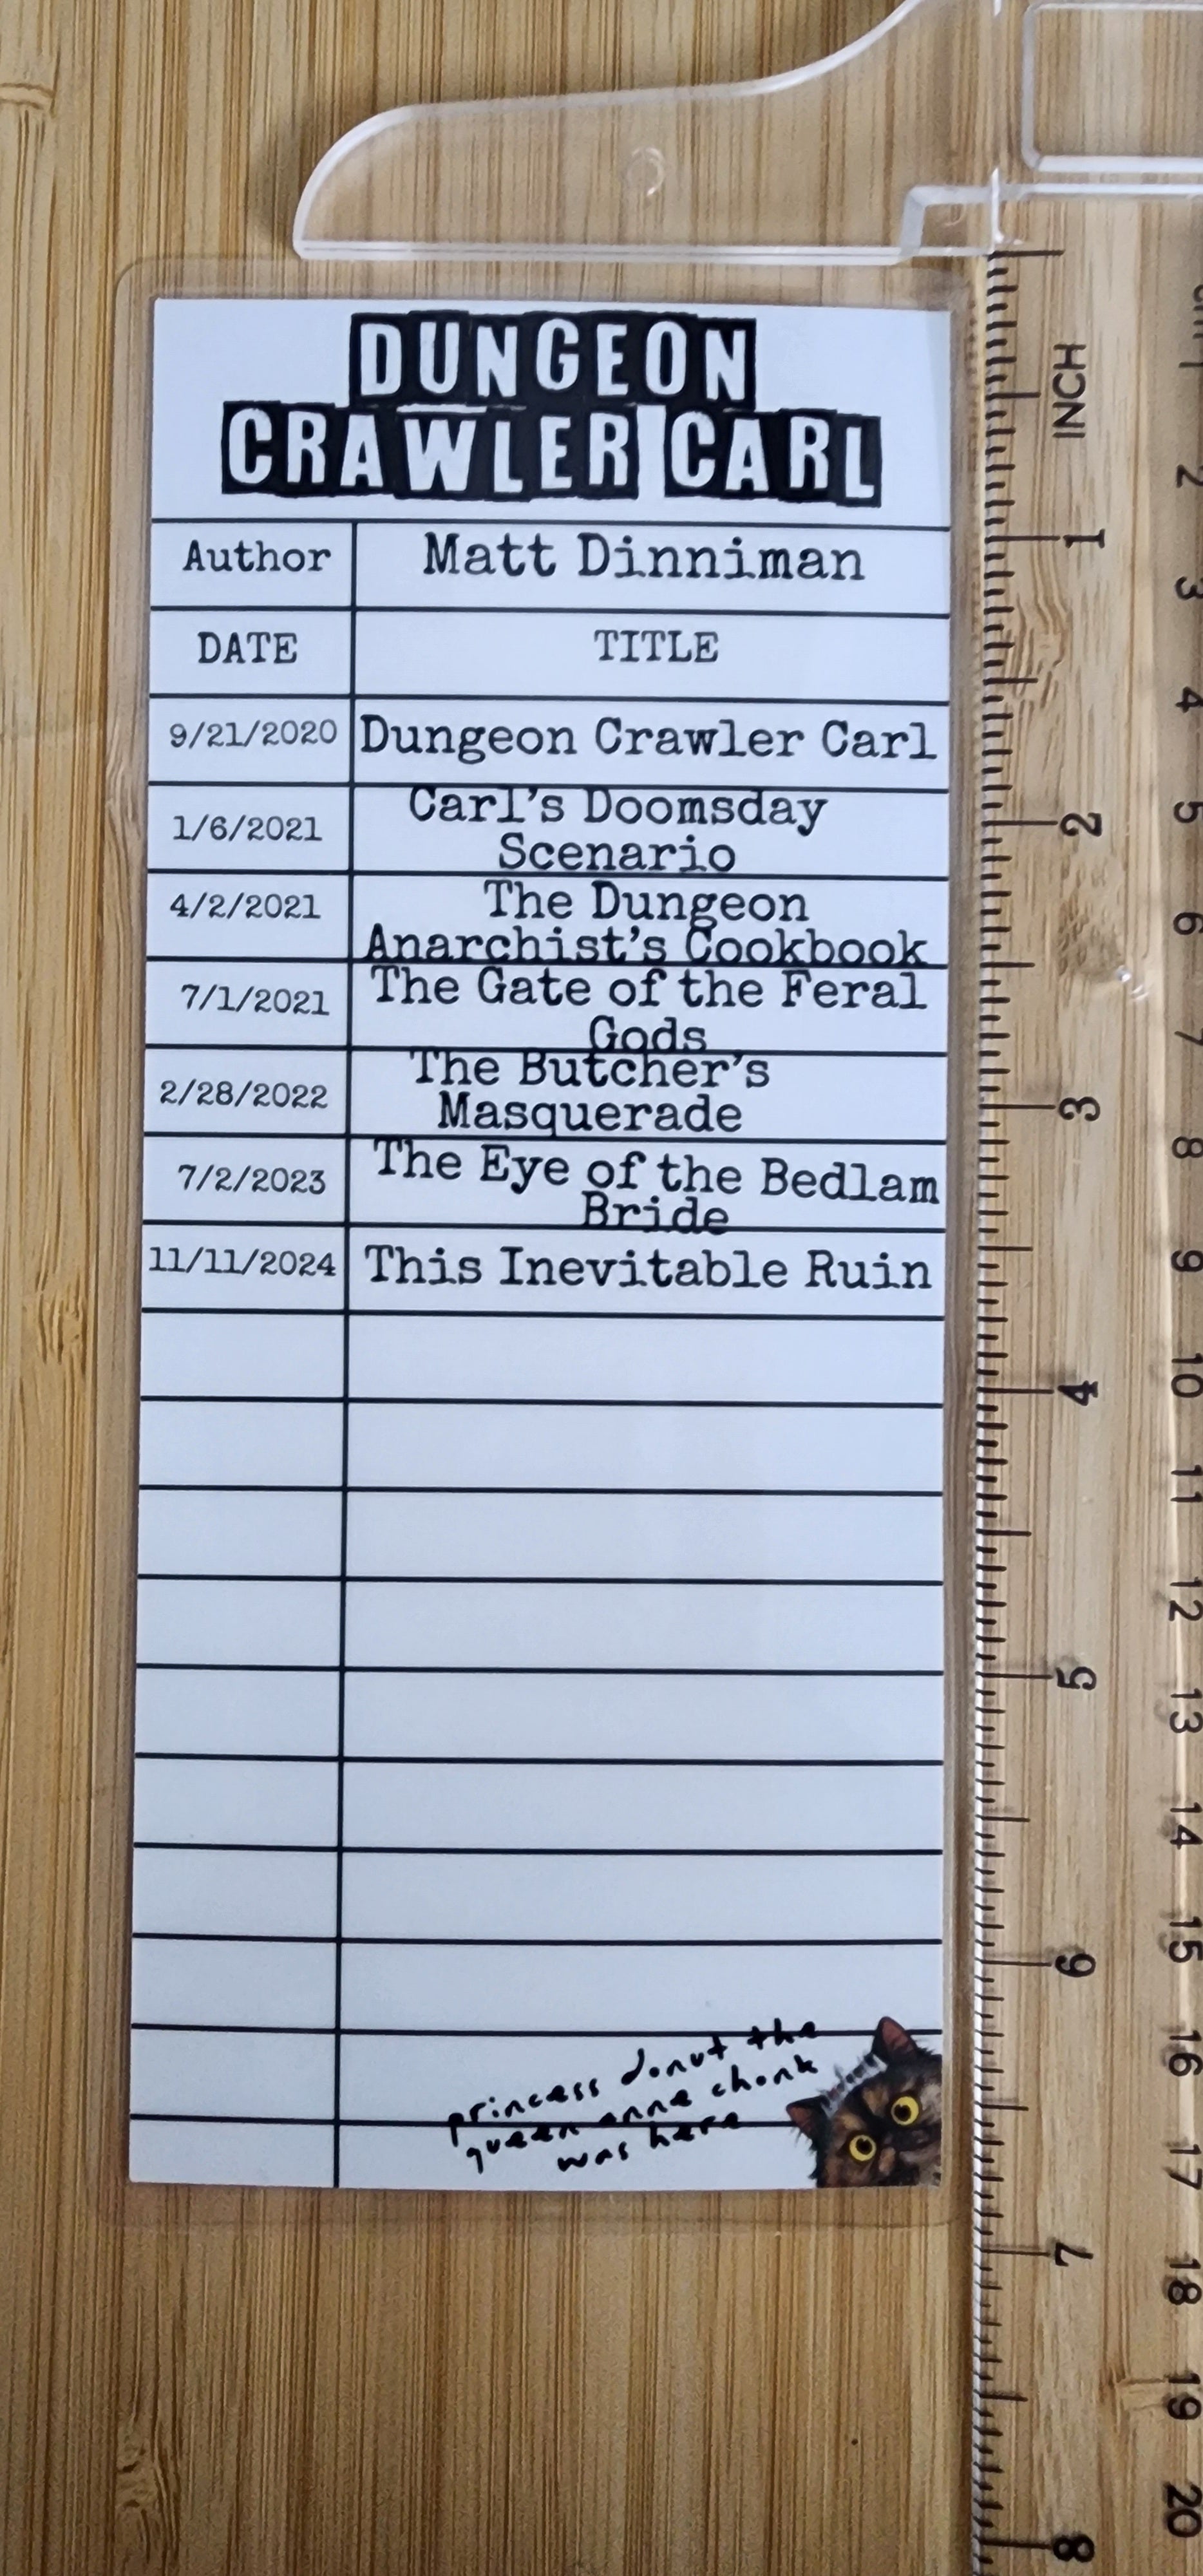 DUNGEON
CRAWLER CARL
Author Matt Dinniman
DATE TITLE
9/21/2020 Dungeon Crawler Carl
1/6/2021 Carl's Doomsday
Scenario
4/2/2021 The Dungeon
Anarchist's Cookbook
7/1/2021 The Gate of the Feral
Gods
2/28/2022 The Butcher's
Masquerade
7/2/2023 The Eye of the Bedlam
Bride
11/11/2024 This Inevitable Ruin
princess donut the
queen anne chonk
was here
INCH
1
2
3
4
5
6
7
8
cm
1
2
3
4
5
6
7
8
9
10
11
12
13
14
15
16
17
18
19
20